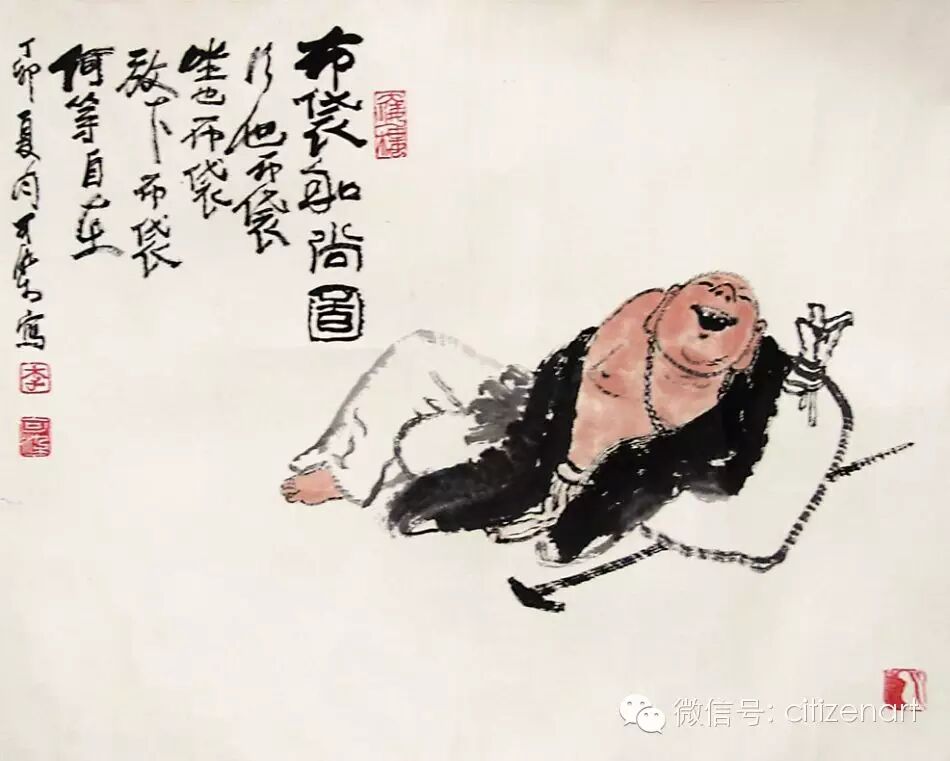 布袋和尚图
行也布袋
坐也布袋
放下布袋
何等自在
丁卯夏月可染写
李
可染
微信号: citizenart